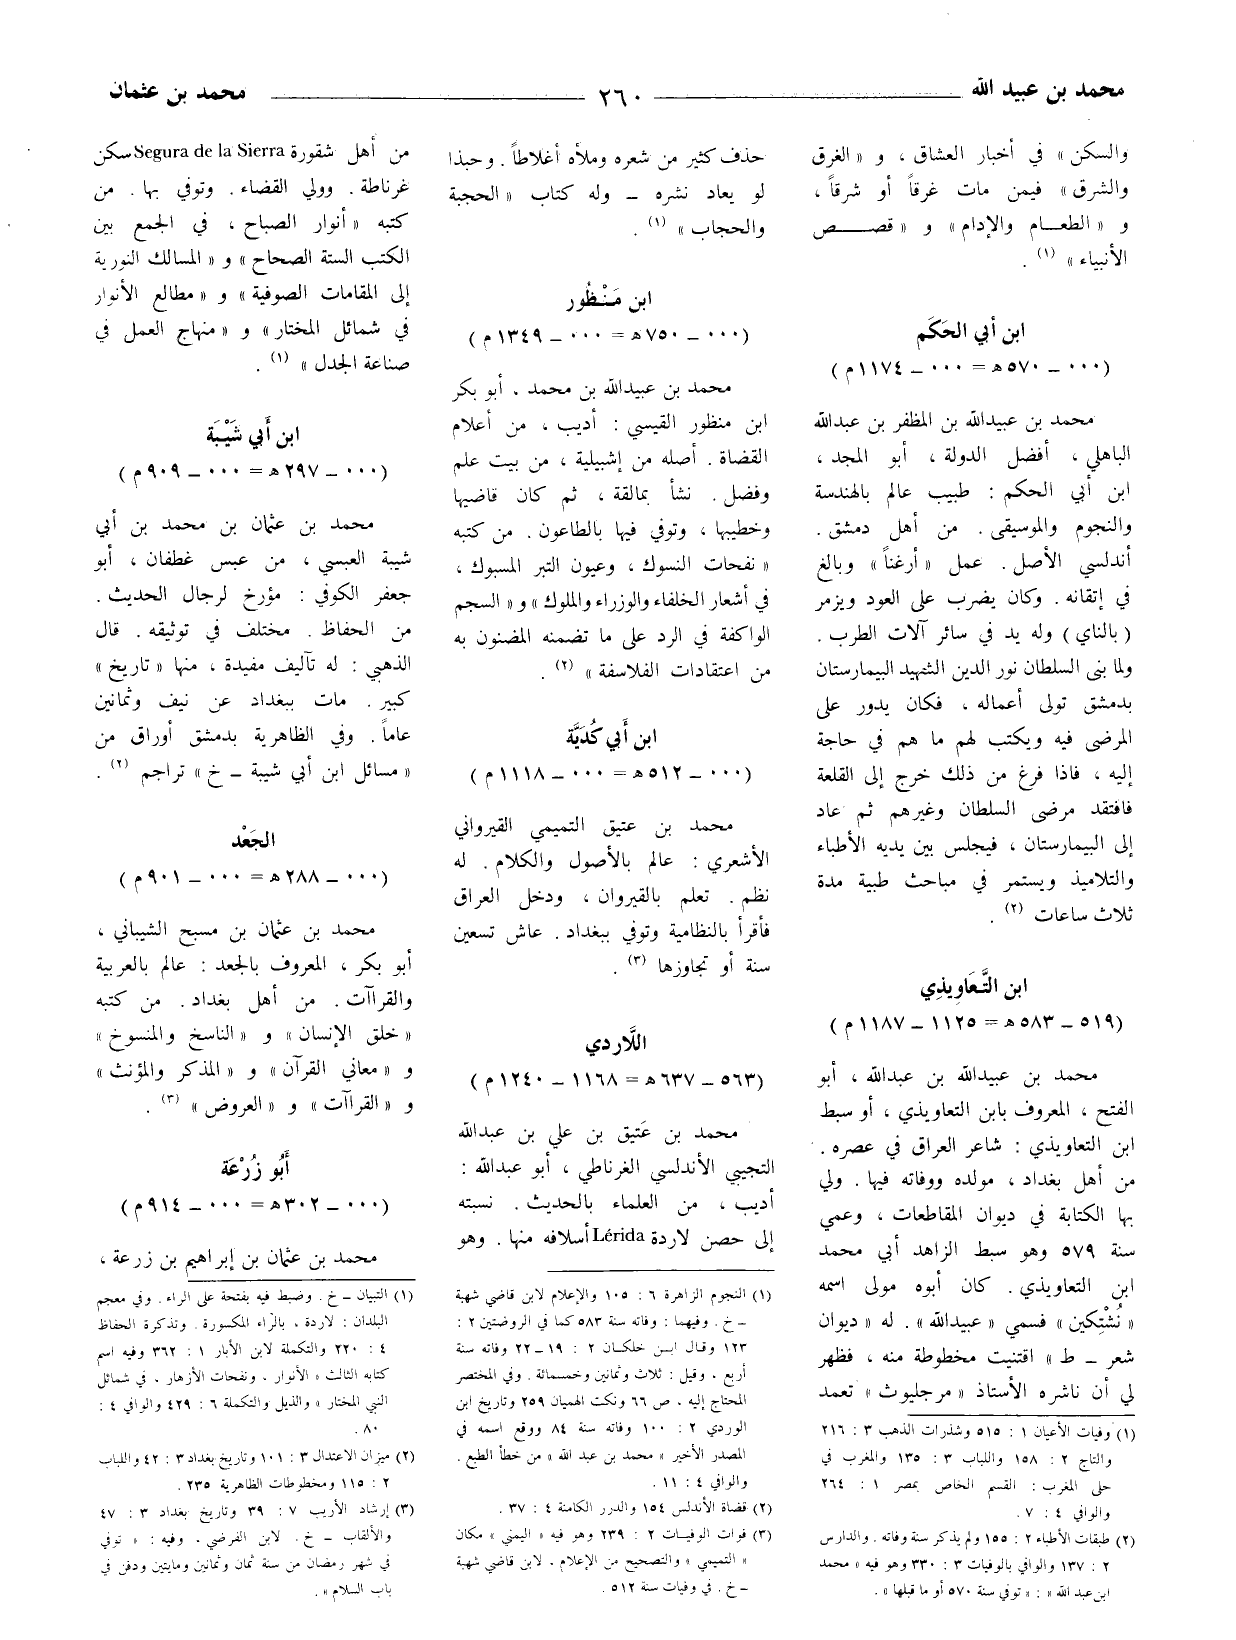 محمد بن عبيد الله
٢٦٠
محمد بن عثمان
والسكن » في أخبار العشاق ، و « الغرق
والشرق » فيمن مات غرقاً أو شرقاً ،
و « الطعـام والإدام » و « قصـــص
الأنبياء » (١) .
ابن أبي الحَكَم
(٠٠٠ ـ ٥٧٠ هـ = ٠٠٠ ـ ١١٧٤ م)
محمد بن عبيدالله بن المظفر بن عبدالله
الباهلي ، أفضل الدولة ، أبو المجد ،
ابن أبي الحكم : طبيب عالم بالهندسة
والنجوم والموسيقى . من أهل دمشق .
أندلسي الأصل . عمل « أرغناً » وبالغ
في إتقانه . وكان يضرب على العود ويزمر
( بالناي ) وله يد في سائر آلات الطرب .
ولما بنى السلطان نور الدين الشهيد البيمارستان
بدمشق تولى أعماله ، فكان يدور على
المرضى فيه ويكتب لهم ما هم في حاجة
إليه ، فاذا فرغ من ذلك خرج إلى القلعة
فافتقد مرضى السلطان وغيرهم ثم عاد
إلى البيمارستان ، فيجلس بين يديه الأطباء
والتلاميذ ويستمر في مباحث طبية مدة
ثلاث ساعات (٢) .
ابن التَّعَاويذِي
(٥١٩ ـ ٥٨٣ هـ = ١١٢٥ ـ ١١٨٧ م)
محمد بن عبيدالله بن عبدالله ، أبو
الفتح ، المعروف بابن التعاويذي ، أو سبط
ابن التعاويذي : شاعر العراق في عصره .
من أهل بغداد ، مولده ووفاته فيها . ولي
بها الكتابة في ديوان المقاطعات ، وعمي
سنة ٥٧٩ وهو سبط الزاهد أبي محمد
ابن التعاويذي . كان أبوه مولى اسمه
« نُشْتِكين » فسمي « عبيدالله » . له « ديوان
شعر ـ ط » اقتنيت مخطوطة منه ، فظهر
لي أن ناشره الأستاذ « مرجليوث » تعمد
(١) وفيات الأعيان ١ : ٥١٥ وشذرات الذهب ٣ : ٢١٦
والتاج ٢ : ١٥٨ واللباب ٣ : ١٣٥ والمغرب في
حلى المغرب : القسم الخاص بمصر ١ : ٢٦٤
والوافي ٤ : ٧ .
(٢) طبقات الأطباء ٢ : ١٥٥ ولم يذكر سنة وفاته . والدارس
٢ : ١٣٧ والوافي بالوفيات ٣ : ٣٣٠ وهو فيه « محمد
ابن عبد الله » : « توفي سنة ٥٧٠ أو ما قبلها » .
حذف كثير من شعره وملأه أغلاطاً . وحبذا
لو يعاد نشره ـ وله كتاب « الحجبة
والحجاب » (١) .
ابن مَنْظُور
(٠٠٠ ـ ٧٥٠ هـ = ٠٠٠ ـ ١٣٤٩ م)
محمد بن عبيدالله بن محمد ، أبو بكر
ابن منظور القيسي : أديب ، من أعلام
القضاة . أصله من إشبيلية ، من بيت علم
وفضل . نشأ بمالقة ، ثم كان قاضيها
وخطيبها ، وتوفي فيها بالطاعون . من كتبه
« نفحات النسوك ، وعيون التبر المسبوك ،
في أشعار الخلفاء والوزراء والملوك » و « السجم
الواكفة في الرد على ما تضمنه المضنون به
من اعتقادات الفلاسفة » (٢) .
ابن أبي كُدَيَّة
(٠٠٠ ـ ٥١٢ هـ = ٠٠٠ ـ ١١١٨ م)
محمد بن عتيق التميمي القيرواني
الأشعري : عالم بالأصول والكلام . له
نظم . تعلم بالقيروان ، ودخل العراق
فأقرأ بالنظامية وتوفي ببغداد . عاش تسعين
سنة أو تجاوزها (٣) .
اللَّارِدي
(٥٦٣ ـ ٦٣٧ هـ = ١١٦٨ ـ ١٢٤٠ م)
محمد بن عَتيق بن علي بن عبدالله
التجيبي الأندلسي الغرناطي ، أبو عبدالله :
أديب ، من العلماء بالحديث . نسبته
إلى حصن لاردة Lérida أسلافه منها . وهو
(١) النجوم الزاهرة ٦ : ١٠٥ والإعلام لابن قاضي شهبة
ـ خ . وفيهما : وفاته سنة ٥٨٣ كما في الروضتين ٢ :
١٢٣ وقال ابـن خلكان ٢ : ١٩ ـ ٢٢ وفاته سنة
أربع ، وقيل : ثلاث وثمانين وخمسمائة . وفي المختصر
المحتاج إليه ، ص ٦٦ ونكت الهميان ٢٥٩ وتاريخ ابن
الوردي ٢ : ١٠٠ وفاته سنة ٨٤ ووقع اسمه في
المصدر الأخير « محمد بن عبد الله » من خطأ الطبع .
والوافي ٤ : ١١ .
(٢) قضاة الأندلس ١٥٤ والدرر الكامنة ٤ : ٣٧ .
(٣) فوات الوفيـات ٢ : ٢٣٩ وهو فيه « اليمني » مكان
« التميمي » والتصحيح من الإعلام . لابن قاضي شهبة
ـ خ . في وفيات سنة ٥١٢ .
من أهل شقورة Segura de la Sierra سكن
غرناطة . وولي القضاء . وتوفي بها . من
كتبه « أنوار الصباح ، في الجمع بين
الكتب الستة الصحاح » و « المسالك النورية
إلى المقامات الصوفية » و « مطالع الأنوار
في شمائل المختار » و « منهاج العمل في
صناعة الجدل » (١) .
ابن أبي شَيْبَة
(٠٠٠ ـ ٢٩٧ هـ = ٠٠٠ ـ ٩٠٩ م)
محمد بن عثمان بن محمد بن أبي
شيبة العبسي ، من عبس غطفان ، أبو
جعفر الكوفي : مؤرخ لرجال الحديث .
من الحفاظ . مختلف في توثيقه . قال
الذهبي : له تآليف مفيدة ، منها « تاريخ »
كبير . مات ببغداد عن نيف وثمانين
عاماً . وفي الظاهرية بدمشق أوراق من
« مسائل ابن أبي شيبة ـ خ » تراجم (٢) .
الجَعْد
(٠٠٠ ـ ٢٨٨ هـ = ٠٠٠ ـ ٩٠١ م)
محمد بن عثمان بن مسبح الشيباني ،
أبو بكر ، المعروف بالجعد : عالم بالعربية
والقراآت . من أهل بغداد . من كتبه
« خلق الإنسان » و « الناسخ والمنسوخ »
و « معاني القرآن » و « المذكر والمؤنث »
و « القراآت » و « العروض » (٣) .
أَبُو زُرْعَة
(٠٠٠ ـ ٣٠٢ هـ = ٠٠٠ ـ ٩١٤ م)
محمد بن عثمان بن إبراهيم بن زرعة ،
(١) التبيان ـ خ . وضبط فيه بفتحة على الراء . وفي معجم
البلدان : لاردة ، بالراء المكسورة . وتذكرة الحفاظ
٤ : ٢٢٠ والتكملة لابن الأبار ١ : ٣٦٢ وفيه اسم
كتابه الثالث « الأنوار ، ونفحات الأزهار ، في شمائل
النبي المختار » والذيل والتكملة ٦ : ٤٢٩ والوافي ٤ :
٨٠ .
(٢) ميزان الاعتدال ٣ : ١٠١ وتاريخ بغداد ٣ : ٤٢ واللباب
٢ : ١١٥ ومخطوطات الظاهرية ٢٣٥ .
(٣) إرشاد الأريب ٧ : ٣٩ وتاريخ بغداد ٣ : ٤٧
والألقاب ـ خ . لابن الفرضي . وفيه : « توفي
في شهر رمضان من سنة ثمان وثمانين ومايتين ودفن في
باب السلام » .